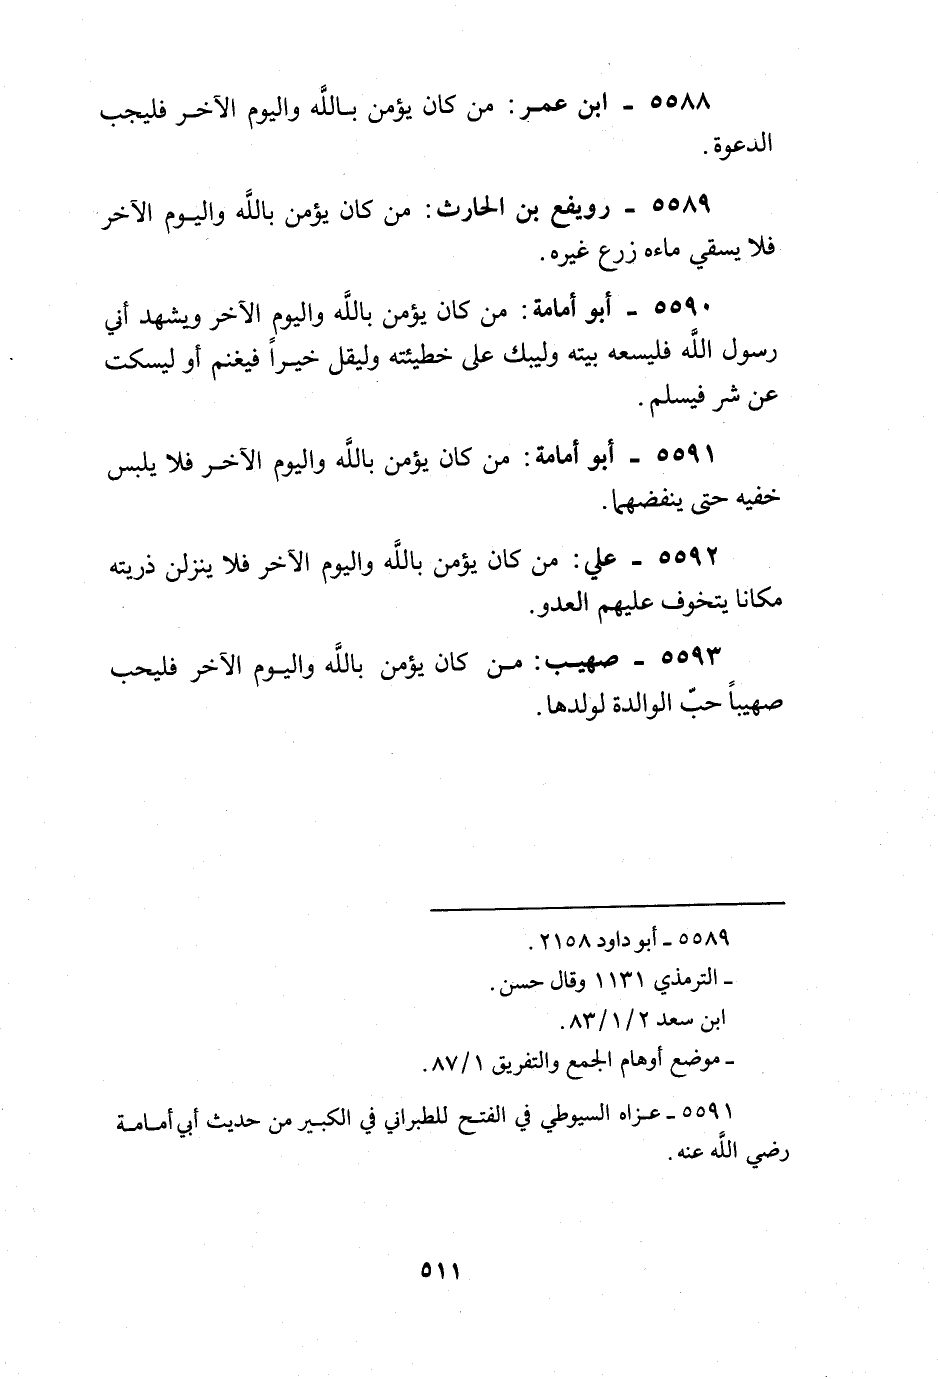 ٥٥٨٨ ـ ابن عمـر: من كان يؤمن بـاللَّه واليوم الآخـر فليجب
الدعوة.
٥٥٨٩ ـ رويفع بن الحارث: من كان يؤمن باللَّه واليـوم الآخر
فلا يسقي ماءه زرع غيره.
٥٥٩٠ ـ أبو أمامة: من كان يؤمن باللَّه واليوم الآخر ويشهد أني
رسول اللَّه فليسعه بيته وليبك على خطيئته وليقل خيـراً فيغنم أو ليسكت
عن شر فيسلم.
٥٥٩١ ـ أبو أمامة: من كان يؤمن باللَّه واليوم الآخـر فلا يلبس
خفيه حتى ينفضهما.
٥٥٩٢ ـ علي: من كان يؤمن باللَّه واليوم الآخر فلا ينزلن ذريته
مكانا يتخوف عليهم العدو.
٥٥٩٣ ـ صهيـب: مـن كان يؤمن باللَّه واليـوم الآخر فليحب
صهيباً حبّ الوالدة لولدها.
٥٥٨٩ ـ أبو داود ٢١٥٨.
ـ الترمذي ١١٣١ وقال حسن.
ابن سعد ٨٣/١/٢.
ـ موضع أوهام الجمع والتفريق ٨٧/١.
٥٥٩١ ـ عـزاه السيوطي في الفتـح للطبراني في الكبـير من حديث أبي أمـامـة
رضي اللَّه عنه.
٥١١